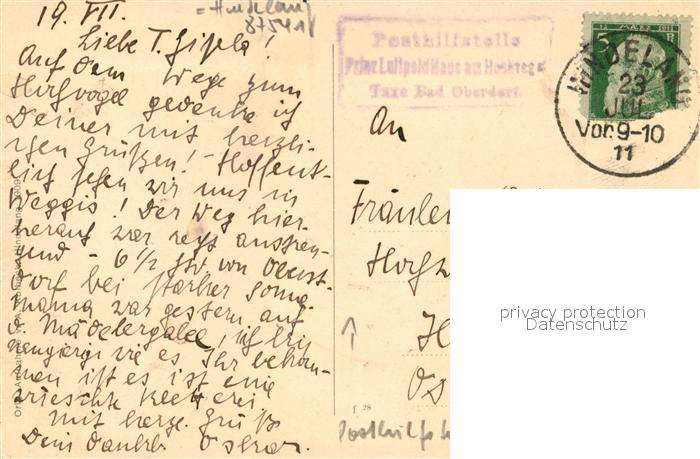 19. VII.
= Hindelang
8754 a
Liebe T. Gisela!
Auf dem Wege zum
Hochvogel gedenke ich
Deiner mit herzli-
chen Grüßen! Hoffent-
lich sehen wir uns in
Weggis! Der Weg hier-
herauf war sehr anstren-
gend - 6 1/2 Std. von Oberst-
dorf bei starker Sonne.
Mama war gestern auf
d. Mädelergabel, ich bin
neugierig wie es Ihr bekom-
men ist es ist eine
Kletterei
Mit herzl. Gruß
Dein dankb. Oskar.
Posthilfstelle
Prinz Luitpold Haus am Hochvogel
Taxe Bad Oberdorf.
5
1911
HINDELANG
23
JUL
Vor. 9-10
11
An
Fräulein
f 28
Posthilfst
privacy protection
Datenschutz